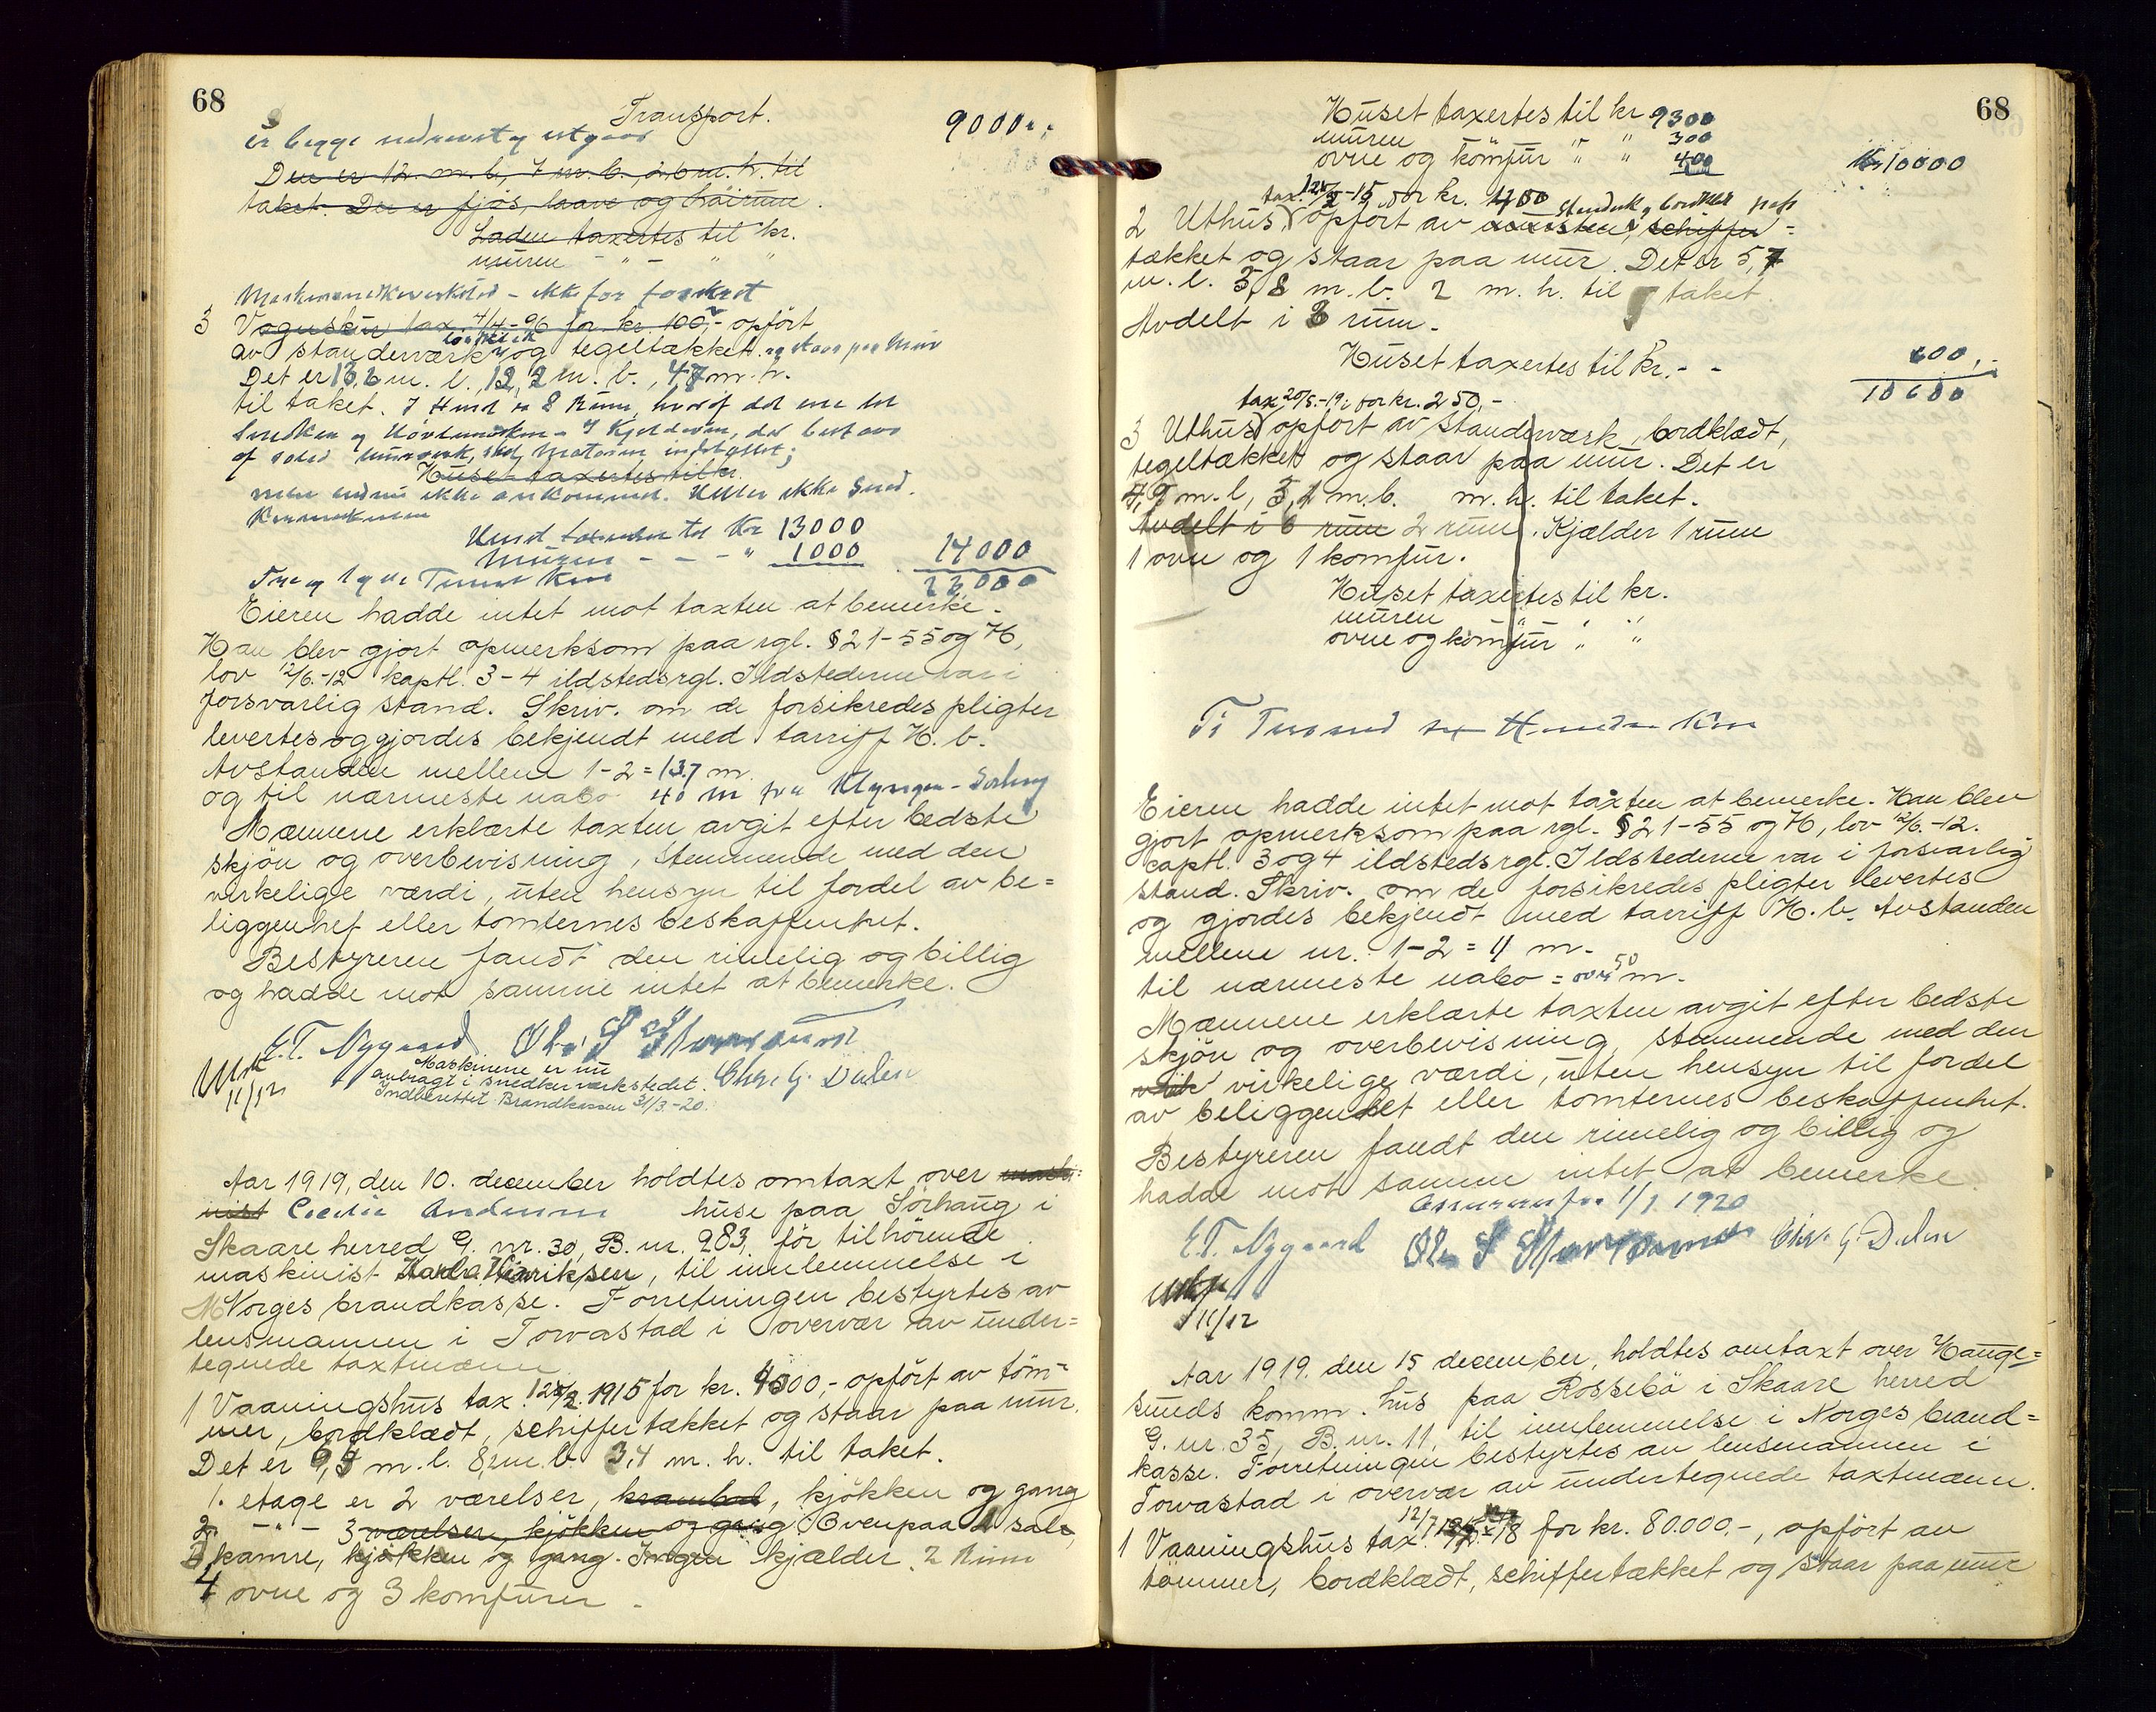 68
Transport. 9000,-
er begge nedrevet og utgaar
Den er 12 m. l., 7 m. b., 2,6 m. h. til
taket. Der er fjøs, laave og høirum.
Laden taxertes til kr.
muren - " - " "
3 Vognskur tax. 4/4-96 for kr. 100,- opført
av standerværk og tegeltækket og staar paa mur
Det er 13,6 m. l., 12,2 m. b., 4,7 m. h.
til taket. I Huset er 8 Rum, hvoraf det ene
Huset taxertes til kr.
men endnu ikke ankommet. Heller ikke Sned.
Huset taxertes til Kr 13000
Muren - - - " 1000 14000
23000
Eieren hadde intet mot taxten at bemerke.
Han blev gjort opmerksom paa rgl. § 21-55 og H,
lov 12/6.-12 kaptl. 3-4 ildstedsrgl. Ildstederne var i
forsvarlig stand. Skriv. om de forsikredes pligter
levertes og gjordes bekjendt med tarriff H. b.
Avstanden mellem 1-2 = 13,7 m.
og til nærmeste nabo 40 m fra
Mænnene erklærte taxten avgit efter bedste
skjøn og overbevisning, stemmende med den
virkelige værdi, uten hensyn til fordel av be=
liggenhet eller tomternes beskaffenhet.
Bestyreren fandt den rimelig og billig
og hadde mot samme intet at bemerke.
E.T. Nygaard
Maskinene er nu
anbragt i snedkerværkstedet. Chr. G. Dalen
Indberettet Brandkassen 31/3.-20.
11/12
Aar 1919, den 10. december holdtes omtaxt over maski=
nist Cecilie Andersen huse paa Sørhaug i
Skaare herred G. nr. 30, B. nr. 283, før tilhørende
maskinist Henriksen, til innlemmelse i
Norges brandkasse. Forretningen bestyrtes av
lensmannen i Torvastad i overvær av under=
tegnede taxtmænn.
1 Vaaningshus tax. 12/2. 1915 for kr. 4500,- opført av töm=
mer, bordklædt, schiffertækket og staar paa mur.
Det er 6,5 m. l. 8, m. b. 3,4 m. h. til taket.
1. etage er 2 værelser, krambod, kjökken og gang
2. -"- 3 værelser, kjökken og gang. Ovenpaa 1 sal,
kamre, kjökken og gang. Ingen kjælder. 2 Rum
4 ovne og 3 komfurer.
68
Huset taxertes til kr 9300
muren " " 300
ovne og komfur " " 400 Kr 10000
tax. -15 for kr. 400
2 Uthus, opført av schiffer=
tækket og staar paa mur. Det er 5,7
m. l. 3,8 m. b. 2 m. h. til taket.
Avdelt i 3 rum.
Huset taxertes til kr. - - 600,-
10600
tax. 20/5.-19. for kr. 250,-
3 Uthus, opført av standerværk, bordklædt,
tegeltækket og staar paa mur. Det er
4,9 m. l, 3,1 m. b. m. h. til taket.
Avdelt i 6 rum 2 rum. Kjælder 1 rum
1 ovn og 1 komfur.
Huset taxertes til kr.
muren " "
ovne og komfur " "
Eieren hadde intet mot taxten at bemerke. Han blev
gjort opmerksom paa rgl. § 21-55 og H, lov 12/6.-12.
captl. 3 og 4 ildstedsrgl. Ildstederne var i forsvarlig
stand. Skriv. om de forsikredes pligter levertes
og gjordes bekjendt med tarriff H. b. Avstanden
mellem nr. 1-2 = 11 m.
til nærmeste nabo = over 50 m.
Mænnene erklærte taxten avgit efter bedste
skjön og overbevisning, stemmende med den
virkelige værdi, uten hensyn til fordel
av beliggenhet eller tomternes beskaffenhet.
Bestyreren fandt den rimelig og billig og
hadde mot samme intet at bemerke.
1/1 1920
E.T. Nygaard Chr. G. Dalen
11/12
Aar 1919. den 15 december, holdtes omtaxt over Hauge=
sunds komm. hus paa Rossebö i Skaare herred
G. nr. 35, B. nr. 11, til innlemmelse i Norges brand=
kasse. Forretningen bestyrtes av lensmannen i
Torvastad i overvær av undertegnede taxtmænn.
1 Vaaningshus tax. 18 for kr. 80.000,-, opført av
tømmer, bordklædt, schiffertækket og staar paa mur